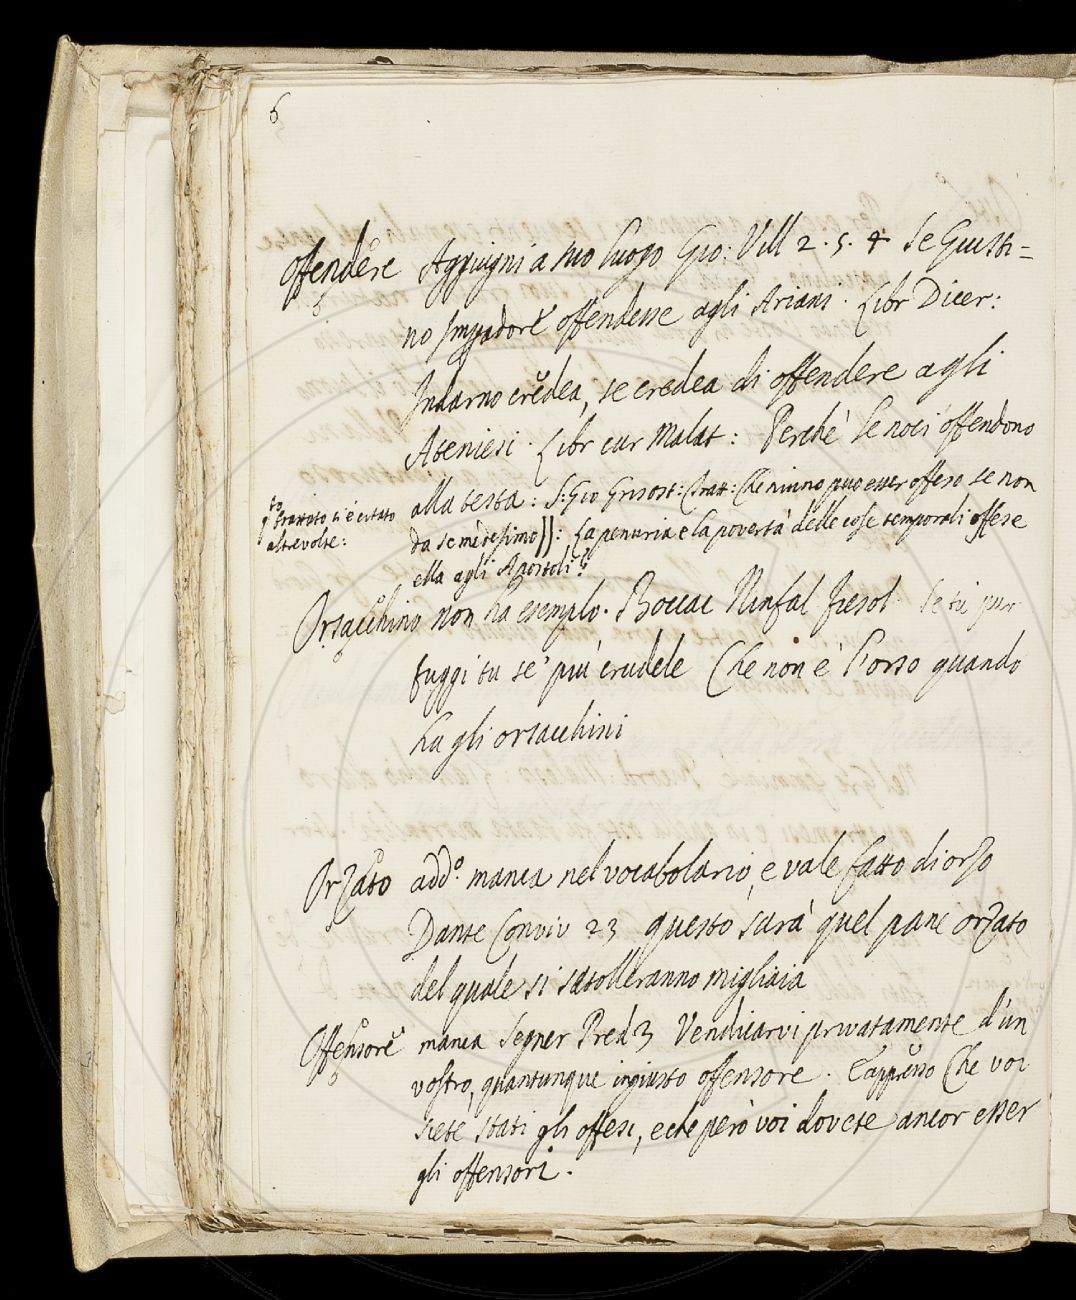 6
Offendere Aggiugni a suo luogo Gio: Vill 2. 5. 4 Se Giusti=
no Impadorẽ offendesse agli Ariani. Libr Dicer:
Indarno credea, se credea di offendere agli
Ateniesi. Libr cur Malat: Perchè le noci offendono
alla testa: S: Gio Grisost: Che niuno puo esser offeso se non
da se medesimo: La penuria e la povertà delle cose temporali offese
ella agli Apostoli?
trattato si è citato
altrevolte:
Orsacchino non ha esemplo. Boccac Ninfal Fiesol Se tu pur
fuggi tu se' più crudele Che non è l'orso quando
ha gli orsacchini
Orzato add.º manca nel vocabolario, e vale fatto di orzo
Dante Conviv 23 questo sarà quel pane orzato
del quale si satolleranno migliaia
Offensore manca Segner Pred 3 Vendicarvi privatamente d'un
vostro, quantunque ingiusto offensore. E appresso Che voi
siete stati gli offesi, e che però voi dovete ancor esser
gli offensori.